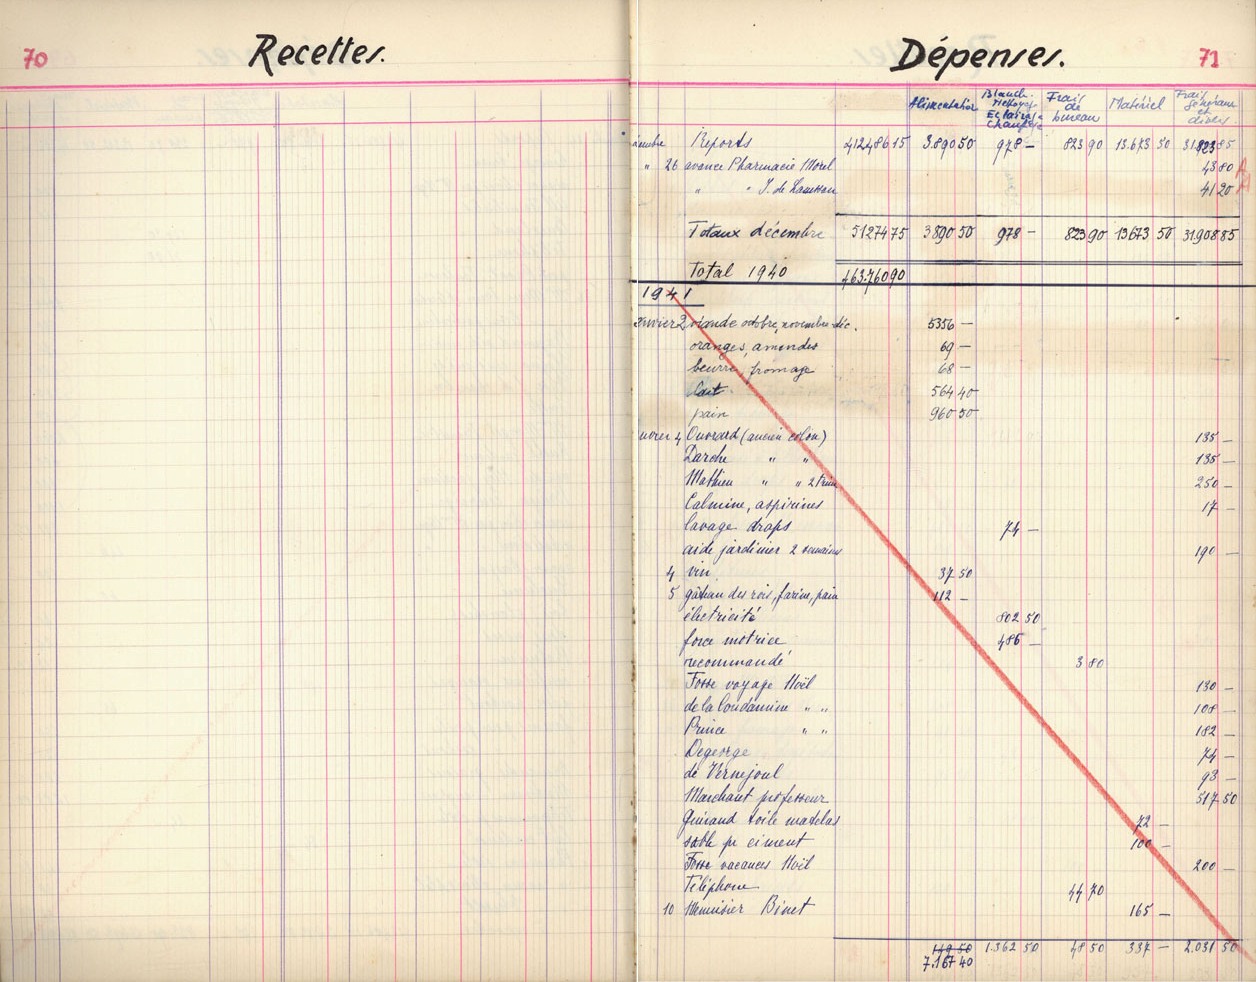 70 Recettes.
Dépenses. 71
Alimentation Blanch. Nettoyage Eclairage Chauffage Frais de bureau Matériel Frais généraux et divers
Reports 41248615 389050 978 — 823 90 13.673 50
" 26 avance Pharmacie Morel 4380 A
" " J. de 4120 A
Totaux décembre 5127475 3890 50 978 — 823 90 13673 50 3190885
Total 1940 463.76090
1941
Janvier 2 viande octobre, novembre-déc. 5356 —
oranges, amendes 69 —
beurre, fromage 68 —
lait 564 40
pain 960 50
4 Ouvrard (ancien colon) 135 —
Darche " " 135 —
Mathieu " " 2 trim 250 —
Calmine, aspirines 17 —
lavage draps 74 —
aide jardinier 2 semaines 190 —
4 vin 37 50
5 gâteau des rois, farine, pain 112 —
électricité 802 50
force motrice 486 —
recommandé 3 80
Fosse voyage Noël 130 —
de la Condamine " " 108 —
Prince " " 182 —
Degeorge 74 —
de Vernejoul 93 —
Marchant professeur 517 50
Guiraud toile matelas 72 —
sable pr ciment 100 —
Fosse vacances Noël 200 —
Téléphone 44 70
10 Menuisier Binet 165 —
149 50 1.362 50 48 50 337 — 2.031 50
7.167 40